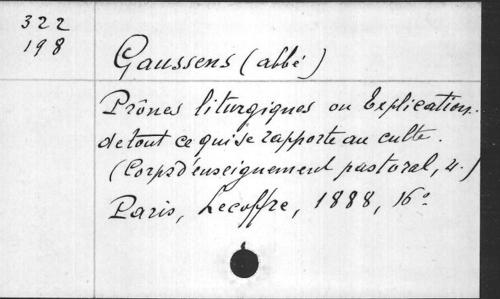 322
198
Gaussens (abbé)
Prônes liturgiques ou Explication
de tout ce qui se rapporte au culte.
(Corps d'enseignement pastoral, 4.)
Paris, Lecoffre, 1888, 16°